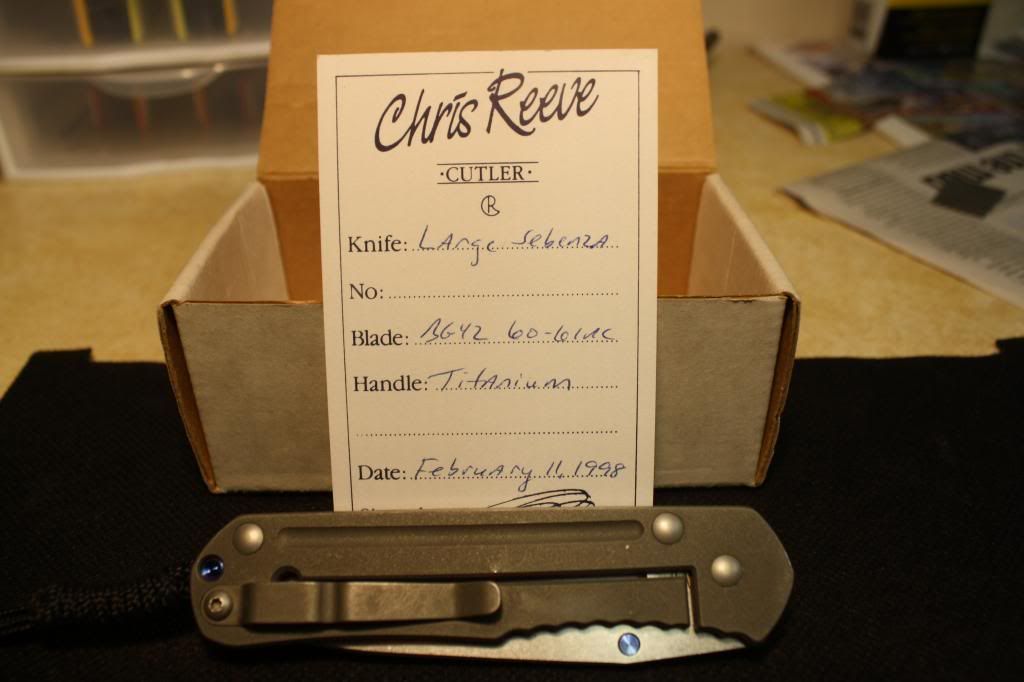 Chris Reeve
·CUTLER·
R
Knife: Large Sebenza
No:
Blade: BG42 60-61RC
Handle: Titanium
Date: February 11, 1998